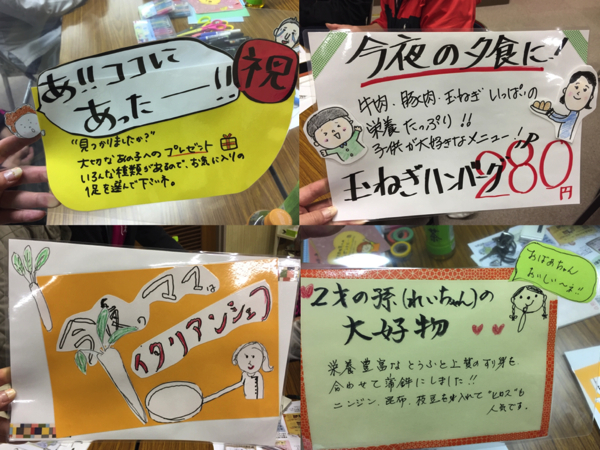 あ!!ココに
あったーー!!
祝
"見つかりましたか?"
大切なあの子へのプレゼント
いろんな種類があるので、お気に入りの
1足を選んで下さいネ。
今夜の夕食に!!
牛肉、豚肉、玉ねぎいっぱいの
栄養たっぷり!!
子供が大好きなメニュー!
玉ねぎハンバーグ
280円
今夜の
ママは
イタリアンシェフ
おばあちゃん
おいしい〜よ!!
2才の孫(れいちゃん)の
大好物
栄養豊富なとうふと上質のすり身を
合わせて薄餅にしました!!
ニンジン、昆布、枝豆も入れて"ヒロス"も
人気です。